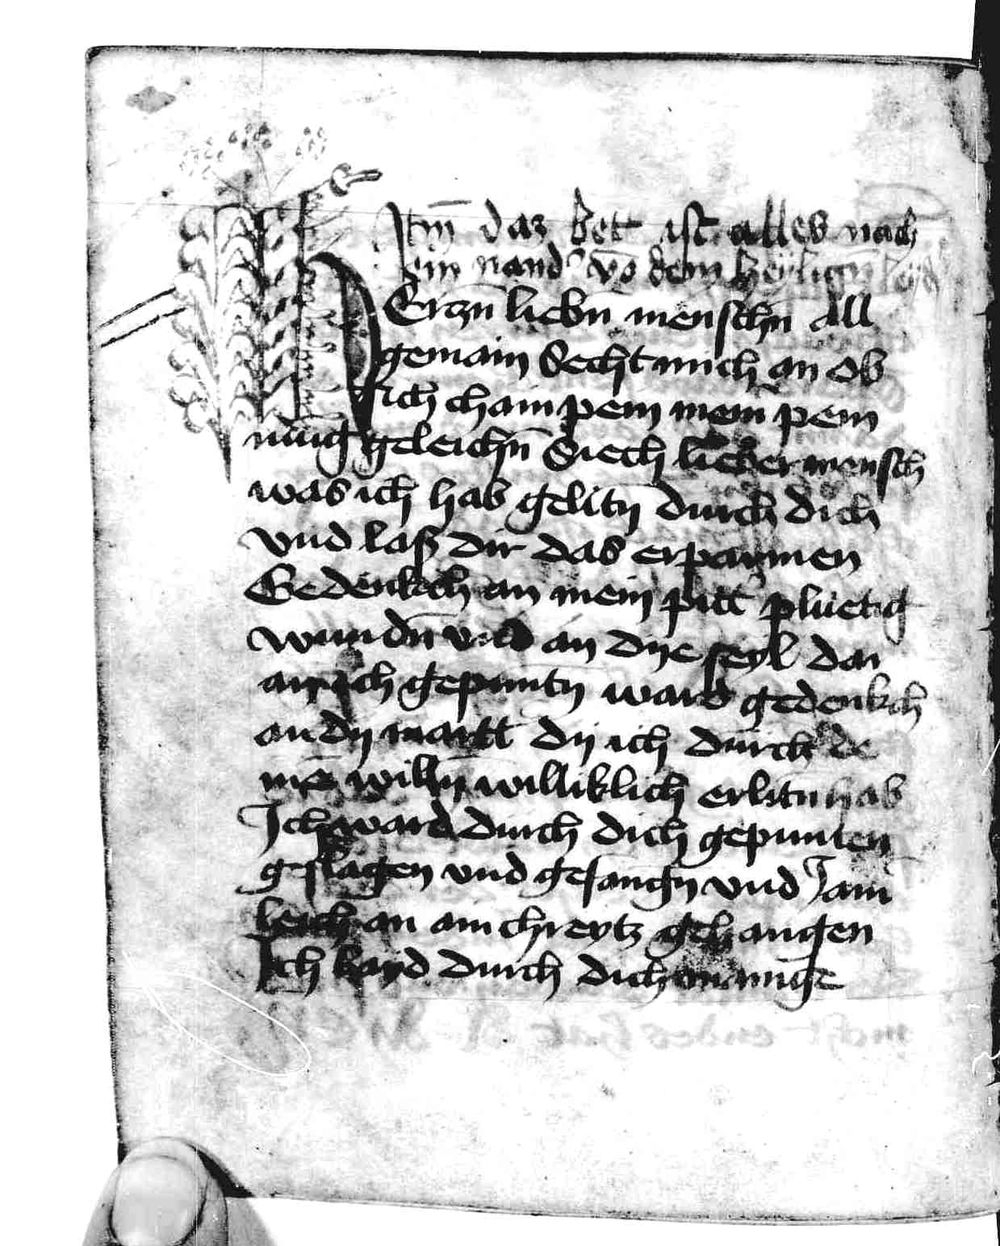 Itm̄ daz bett ist alles nach
ein nand̾ vō dem heyligen leyd
HErczn̄ liebn̄ menschn̄ all
gemain Secht mich an ob
sich chain pein mein̄ pein
mūg geleichn̄ Siech lieber mensch
was ich hab gelitn̄ durch dich
vnd laß dir das erparmen
Gedenkch an mein pitt pluetig
wundn̄ vnd an dye seyl dar
an ich gepuntn̄ ward gedenkch
an dy martt dy ich durch de
inē willn̄ williklich erlitn̄ hab
Ich ward durch dich gepunten
geslagen vnd gefangn̄ vnd Jam
leich an ain chreytz gehangen
Ich layd durch dich manige